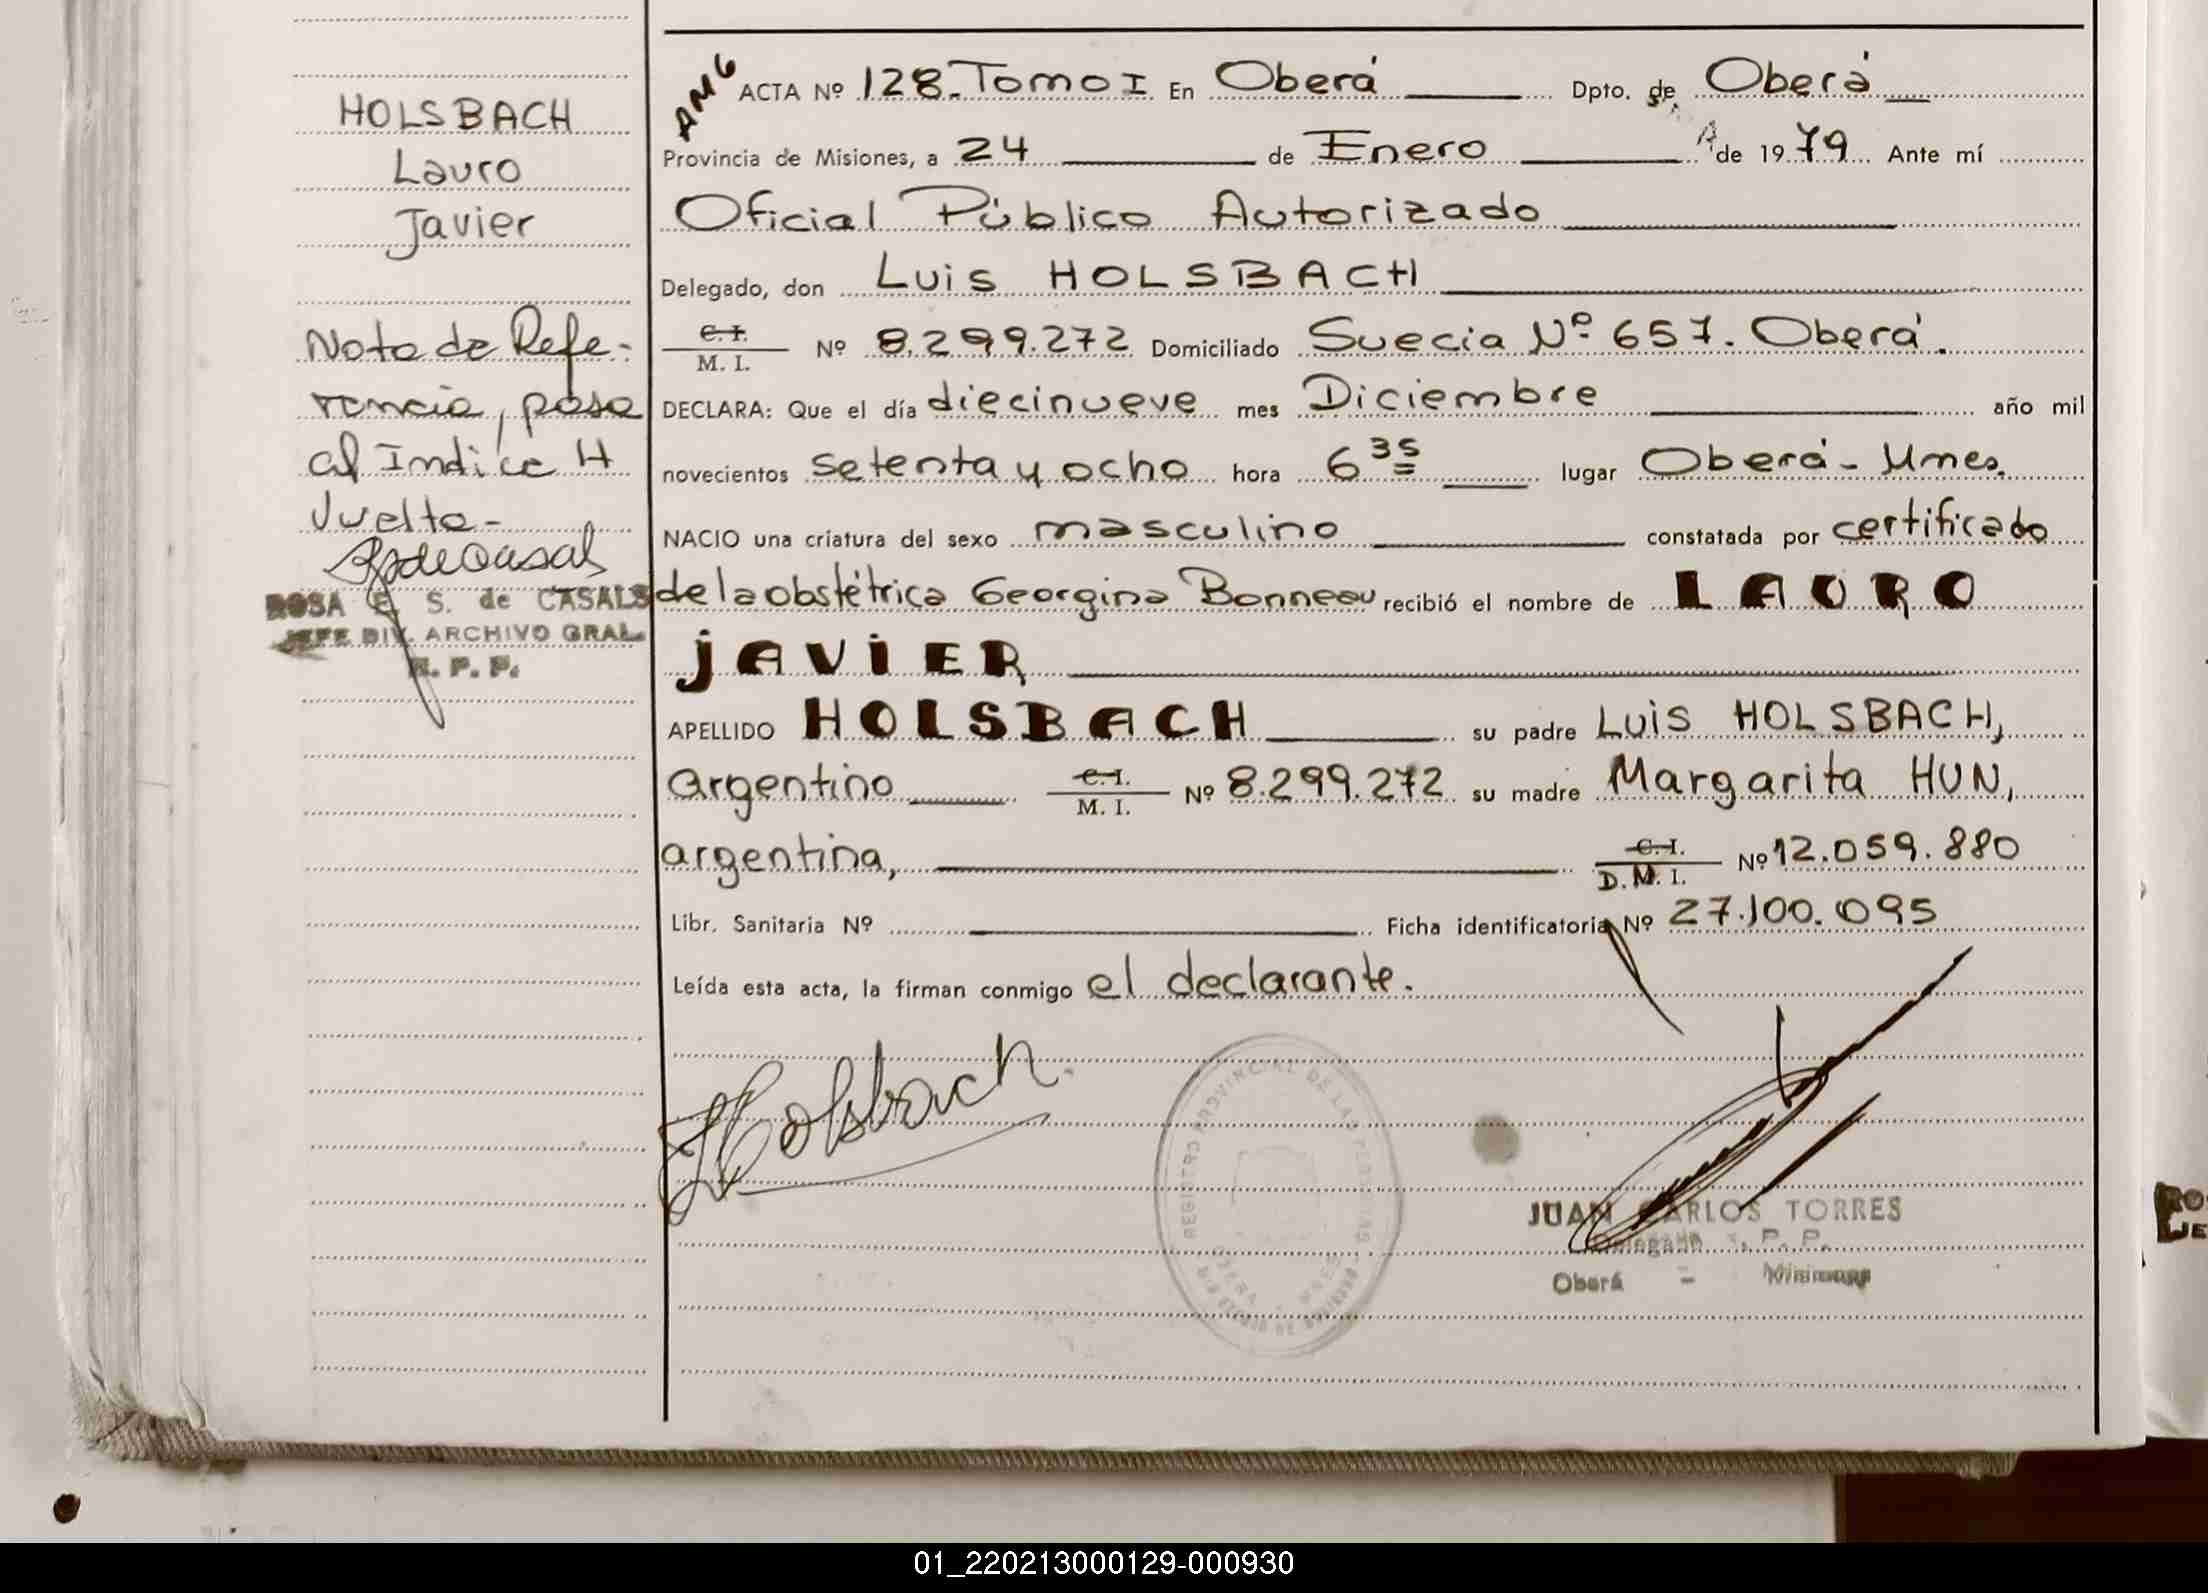 HOLSBACH
Lauro
Javier
Nota de Refe-
rencia, pasa
al Indice H
Vuelta-
ROSA E. S. de CASALS
JEFE DIV. ARCHIVO GRAL.
R. P. P.
ACTA Nº 128. Tomo I En Oberá Dpto. de Oberá
Provincia de Misiones, a 24 de Enero de 1979 Ante mí
Oficial Público Autorizado
Delegado, don Luis HOLSBACH
C. I.
M. I. Nº 8.299.272 Domiciliado Suecia Nº 657. Oberá.
DECLARA: Que el día diecinueve mes Diciembre año mil
novecientos setenta y ocho hora 6 35 lugar Oberá - Mnes.
NACIO una criatura del sexo masculino constatada por certificado
de la obstétrica Georgina Bonneau recibió el nombre de LAURO
JAVIER
APELLIDO HOLSBACH su padre Luis HOLSBACH,
argentino C. I. M. I. Nº 8.299.272 su madre Margarita HUN,
argentina, C. I. D. M. I. Nº 12.059.880
Libr. Sanitaria Nº Ficha identificatoria Nº 27.100.095
Leída esta acta, la firman conmigo el declarante.
Holsbach
REGISTRO PROVINCIAL DE LAS PERSONAS
JUAN CARLOS TORRES
Delegado R. P. P.
Oberá - Misiones
01_220213000129-000930